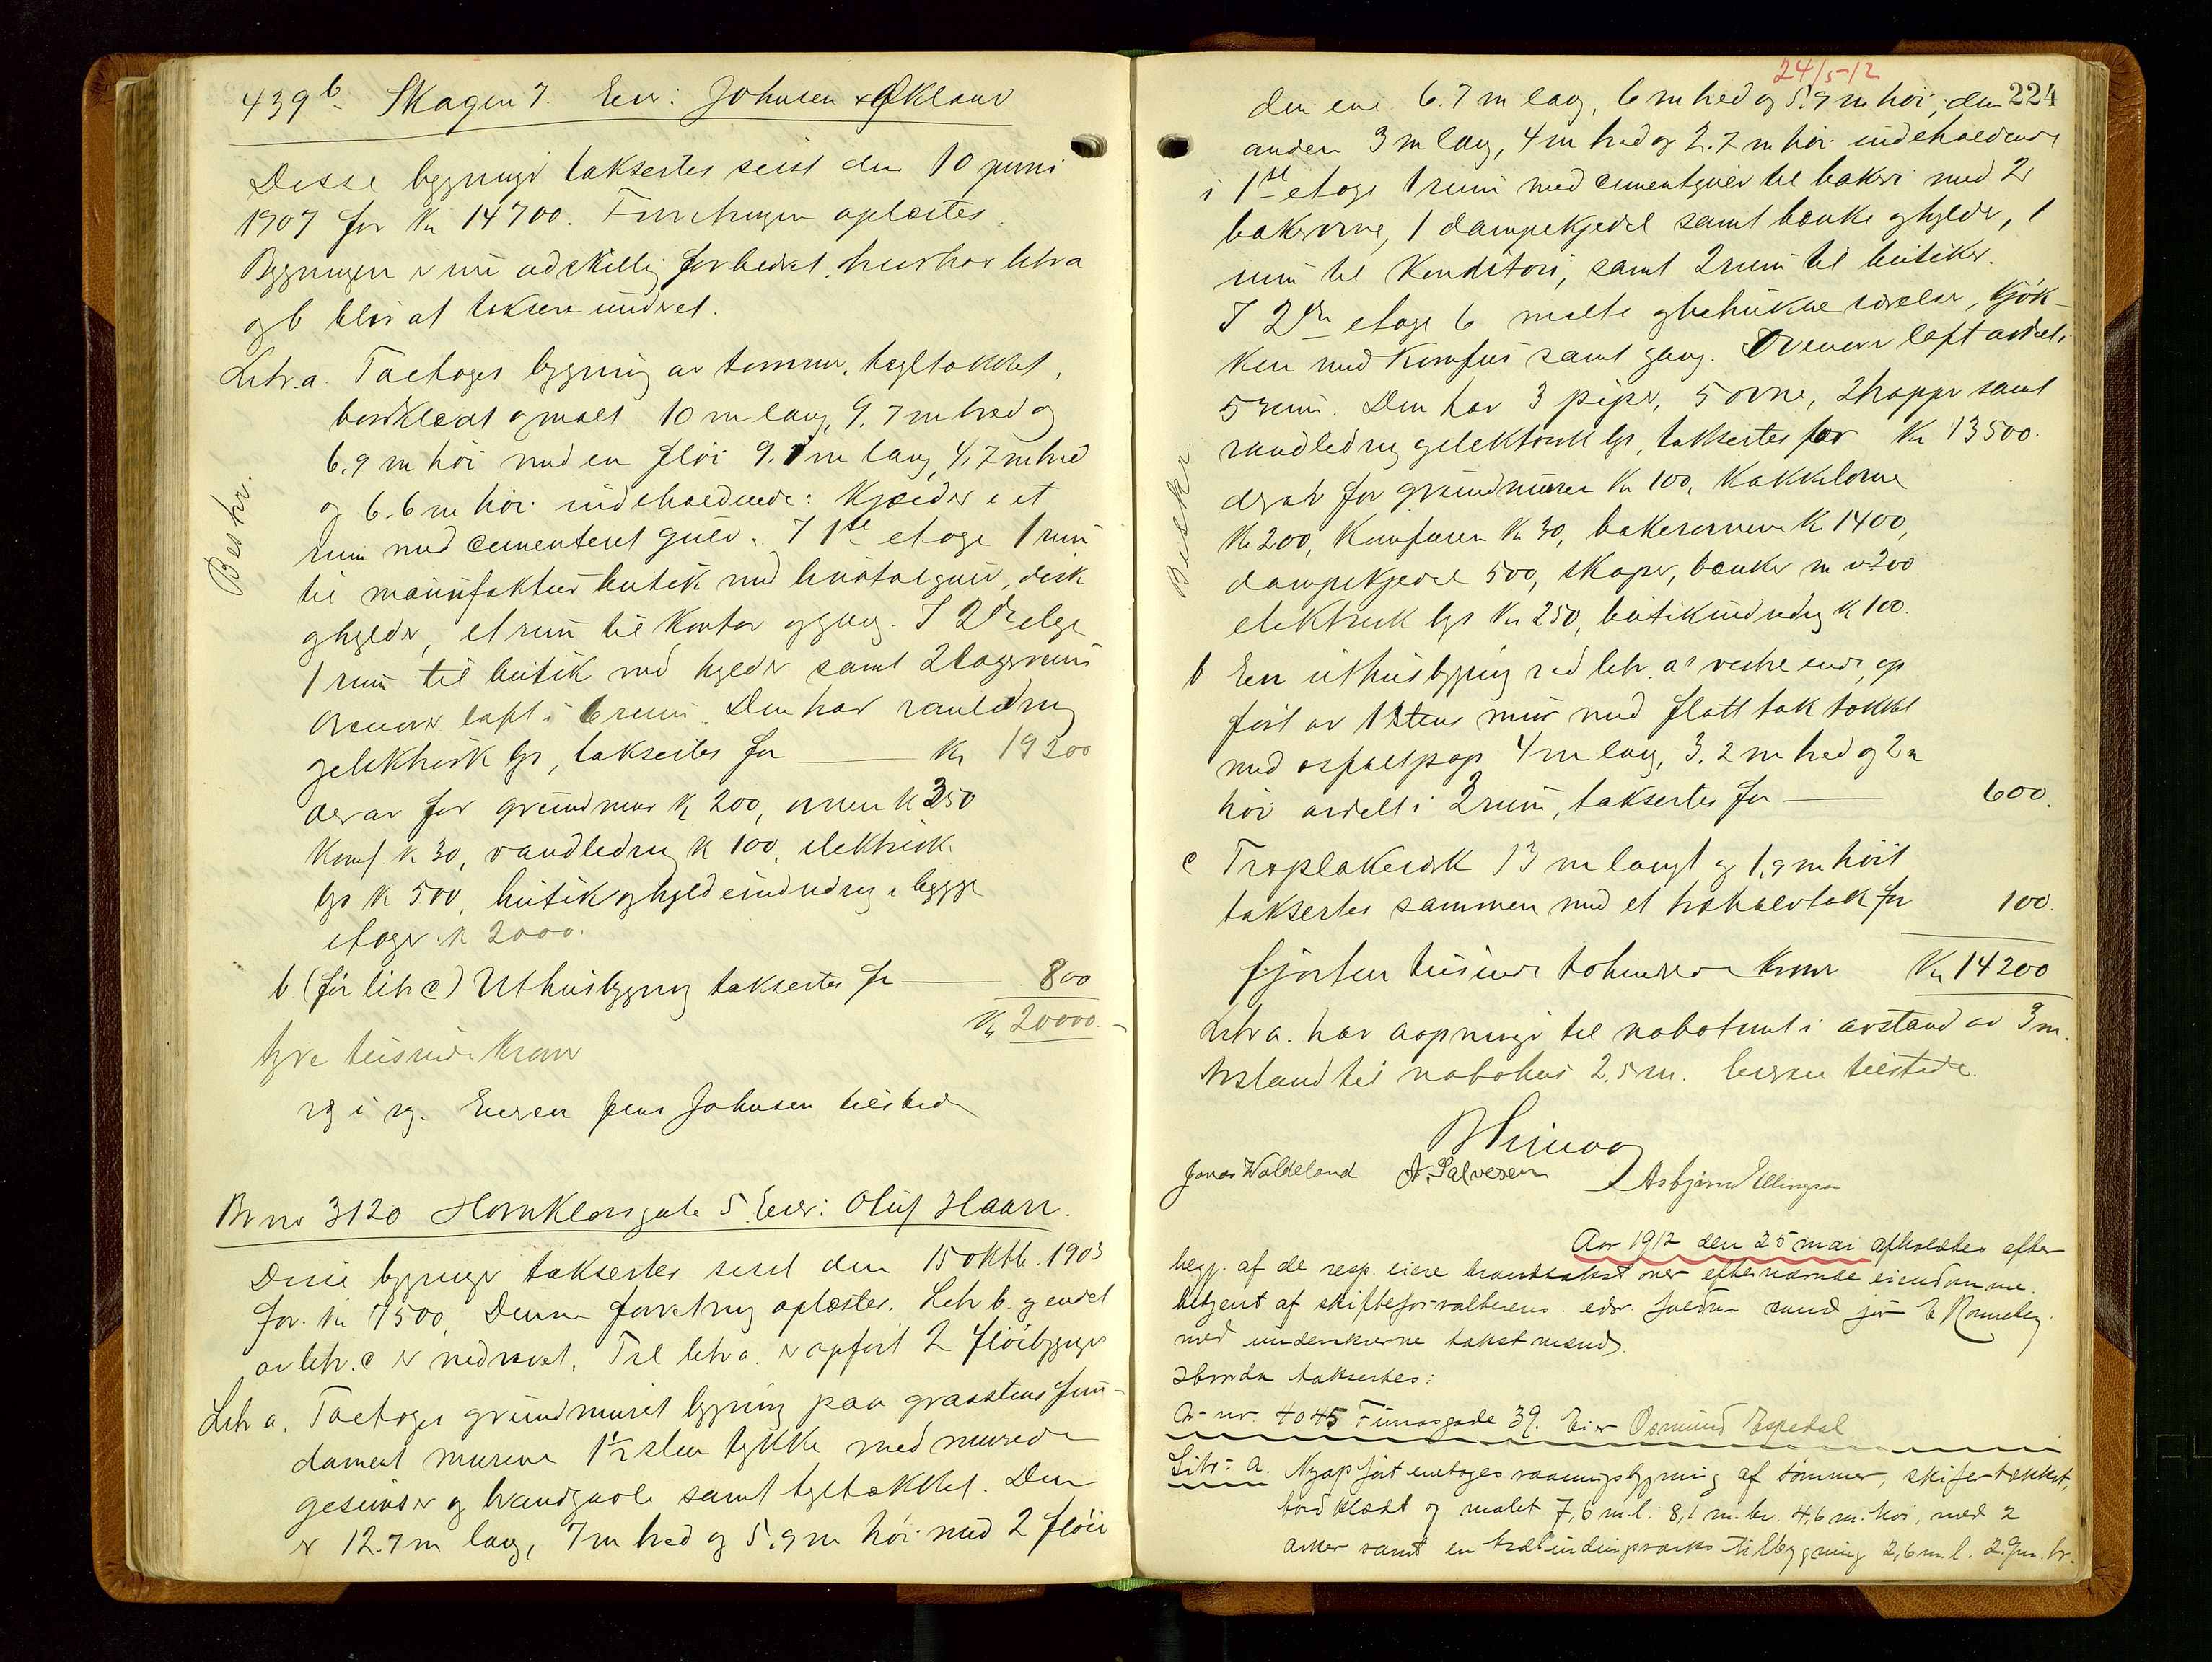 439b Skagen 7. Eier: Johnsen & Økland
Disse bygninger taksertes sidst den 10 juni
1907 for Kr 14700. Forretningen oplæstes.
Bygningen er nu adskillig forbedret, hvorhos litra
og b blir at taksere under et.
Litr. a. Toetages bygning av tømmer, tegltækket,
bordklædt og malt 10 m lang, 9,7 m bred og
6,9 m høi med en fløi 9,1 m lang, 4,7 m bred
og 6,6 m høi indeholdende: Kjælder i et
Beskr.
rum med cementeret gulv. I 1ste etage 1 rum
til manufaktur butik med linoleumgulv, disk
og hylder, et rum til kontor og gang. I 2den etage
1 rum til butik med hylder samt 2 lagerrum
Ovenover loft i 6 rum. Den har vandledning
og elektrisk lys, taksertes for Kr 19200
derav for grundmur Kr 200, ovnen Kr 350
Komf. Kr 30, vandledning Kr 100, elektrisk
lys Kr 500, butik og hyldeindredning i begge
etager Kr 2000.
b (før litr c) Uthusbygning taksertes for 800
Kr 20000.-
tyve tusinde kroner
Eieren Jens Johnsen tilstede
Br no 3120 Hornklovsgate 5. Eier: Oluf Haarr.
Disse bygninger taksertes sidst den 15 oktb. 1903
for Kr 7500. Denne forretning oplæstes. Litr b. og endel
av litr. c er nedrevet. Til litr a. er opført 2 fløibygninger
Litr a. Toetages grundmuret bygning paa graastensfun-
dament murene 1½ sten tykke med murede
gesimser og brandgavle samt tegltækket. Den
er 12.7 m lang, 7 m bred og 5,9 m høi med 2 fløie
24/5-12
224
den ene 6.7 m lang, 6 m bred og 5,9 m høi, den
anden 3 m lang, 4 m bred og 2.7 m høi indeholdende
i 1ste etage 1 rum med cementgulv til bakeri med 2
bakerovne, 1 dampekjedel samt bænke og hylder, 1
rum til konditori, samt 2 rum til butiker.
I 2den etage 6 malte og betrukne værelser, kjøk-
ken med komfur samt gang. Ovenover loft avdelt i
5 rum. Den har 3 piper, 5 ovne, 2 trapper samt
vandledning og elektrisk lys, taksertes for Kr 13500.
Beskr.
derav for grundmuren Kr 100, kakkelovne
Kr 200, Komfuren Kr 30, bakerovnene Kr 1400,
dampekjedel 500, skaper, bænker m v 200
elektrisk lys Kr 250, butikindredng Kr 100.
b En uthusbygning ved litr. a's vestre ende, op
ført av 1 stens mur med flatt tak tækket
med asfaltpap 4 m lang, 3.2 m bred og 2 m
høi avdelt i 2 rum, taksertes for 600.
c Træplankeværk 13 m langt og 1,9 m høit
taksertes sammen med et træhalvtak for 100.
fjorten tusinde tohundrede kroner Kr 14200
Litr a. har aapninger til nabotomt i avstand av 3 m.
Avstand til nabohus 2.5 m. Eieren tilstede.
Jonas Waldeland A. Salvesen Asbjørn Ellingsen
Aar 1912 den 25 mai afholdtes efter
begj. af de resp. eiere brandtakst over efternævnte eiendomme.
betjent af skifteforvalterens edsv. fuldm. cand jur E Rønneberg
med underskrevne takstmænd.
Hvorda taksertes:
Br nr. 4045 Finnesgade 39. Eier Osmund Espedal
Litr: a. Nyopført enetages vaaningsbygning af tømmer, skifertækket,
bordklædt og malet 7,6 m.l. 8,1 m. br. 4,6 m. høi, med 2
arker samt en træbindingsværks tilbygning 2,6 m. l. 2.9 m. br.